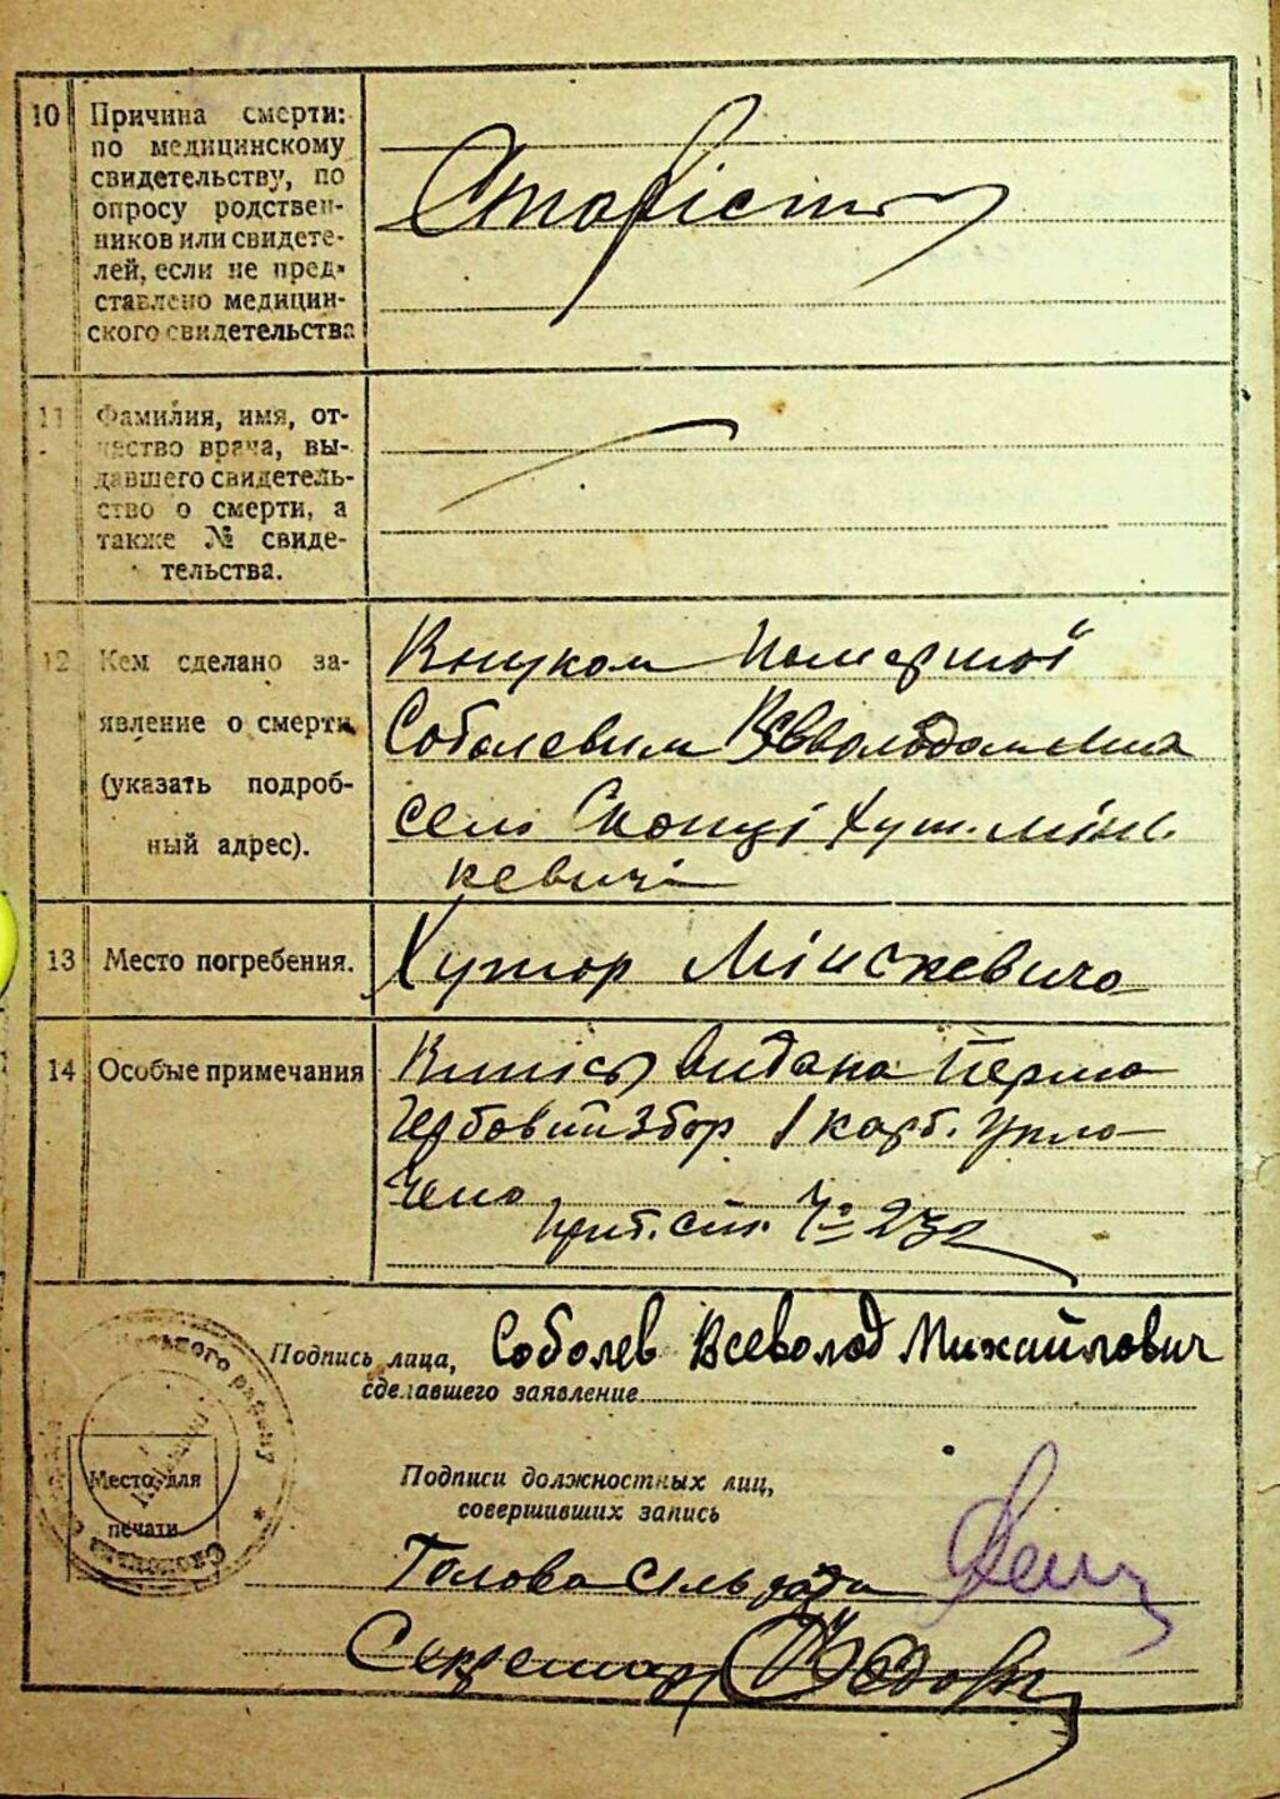 10 Причина смерти:
по медицинскому
свидетельству, по
опросу родствен-
ников или свидете-
лей, если не пред-
ставлено медицин-
ского свидетельства
Старість
11 Фамилия, имя, от-
чество врача, вы-
давшего свидетель-
ство о смерти, а
также № свиде-
тельства.
12 Кем сделано за-
явление о смерти
(указать подроб-
ный адрес).
Внуком Померлої
Соболевим
село Скопці Хут. Мінс.
кевича
13 Место погребения.
Хутор Мінскевича
14 Особые примечания
Випісь видана Перша
гербовий збор 1 карб. упло
чено
квит. 232
Подпись лица,
сделавшего заявление
Соболев Всеволод Михайлович
Подписи должностных лиц,
совершивших запись
Место для
печати
ського району
Голова сільради
Секретар